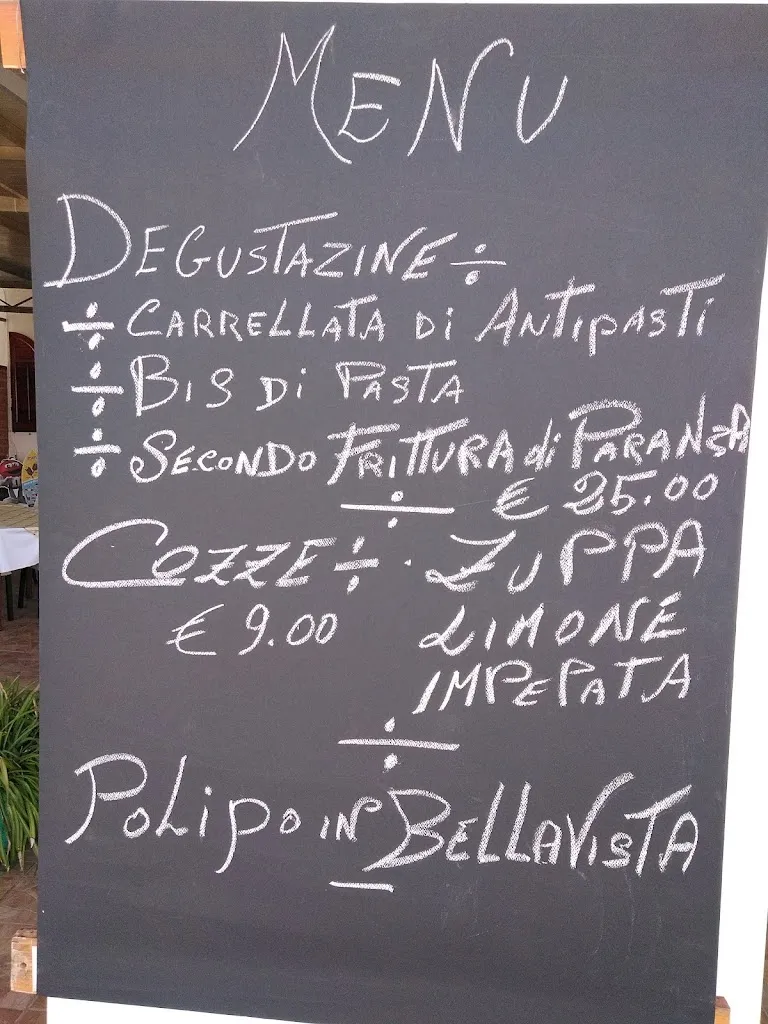 MENU
DEGUSTAZINE ÷
÷ CARRELLATA Di ANTiPASTi
÷ BIS Di PASTA
÷ SECONDO FRITTURA di PARANZA
€ 25.00
÷
COZZE ÷ . ZUPPA
€ 9.00 LIMONE
IMPEPATA
÷
POLipO IN BELLAVISTA